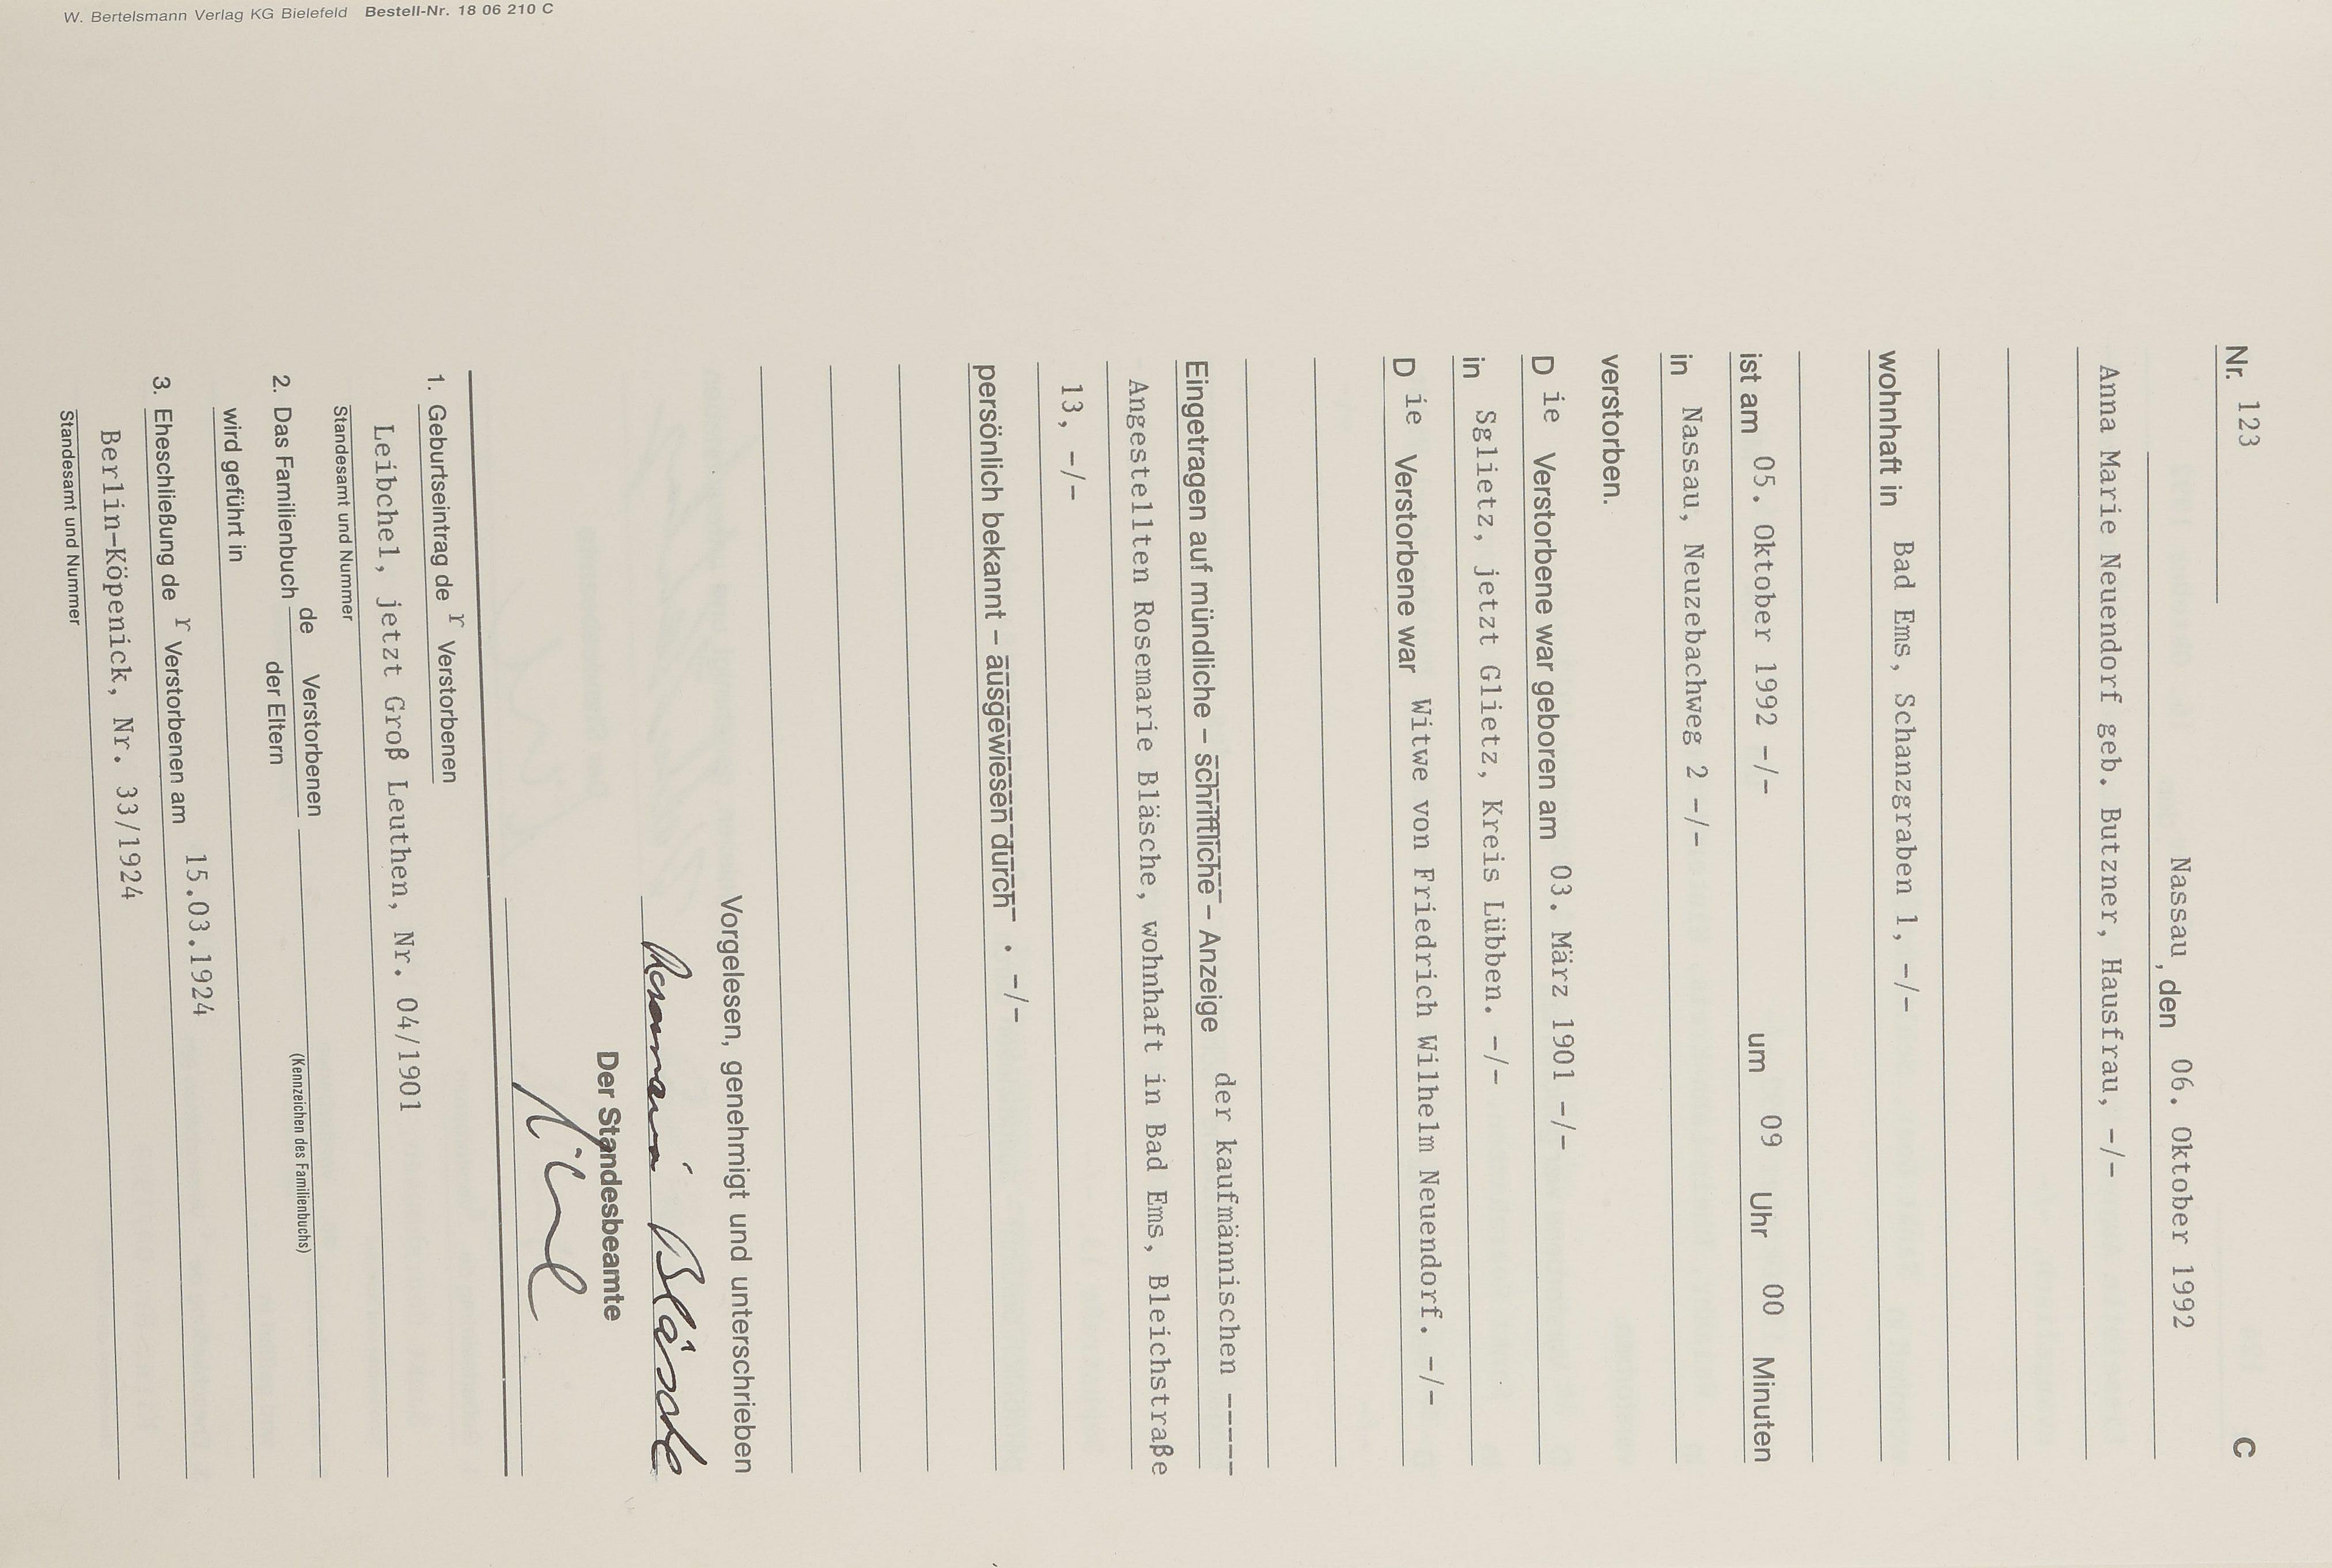 Nr. 123 C
Nassau, den 06. Oktober 1992
Anna Marie Neuendorf geb. Butzner, Hausfrau, -/-
wohnhaft in Bad Ems, Schanzgraben 1, -/-
ist am 05. Oktober 1992 -/- um 09 Uhr 00 Minuten
in Nassau, Neuzebachweg 2 -/-
verstorben.
Die Verstorbene war geboren am 03. März 1901 -/-
in Sglietz, jetzt Glietz, Kreis Lübben. -/-
Die Verstorbene war Witwe von Friedrich Wilhelm Neuendorf. -/-
Eingetragen auf mündliche – schriftliche – Anzeige der kaufmännischen -----
Angestellten Rosemarie Bläsche, wohnhaft in Bad Ems, Bleichstraße
13, -/-
persönlich bekannt – ausgewiesen durch . -/-
Vorgelesen, genehmigt und unterschrieben
Rosemarie Bläsche
Der Standesbeamte
1. Geburtseintrag der Verstorbenen
Leibchel, jetzt Groß Leuthen, Nr. 04/1901
Standesamt und Nummer
2. Das Familienbuch de Verstorbenen
der Eltern
(Kennzeichen des Familienbuchs)
wird geführt in
3. Eheschließung der Verstorbenen am 15.03.1924
Berlin-Köpenick, Nr. 33/1924
Standesamt und Nummer
W. Bertelsmann Verlag KG Bielefeld Bestell-Nr. 18 06 210 C